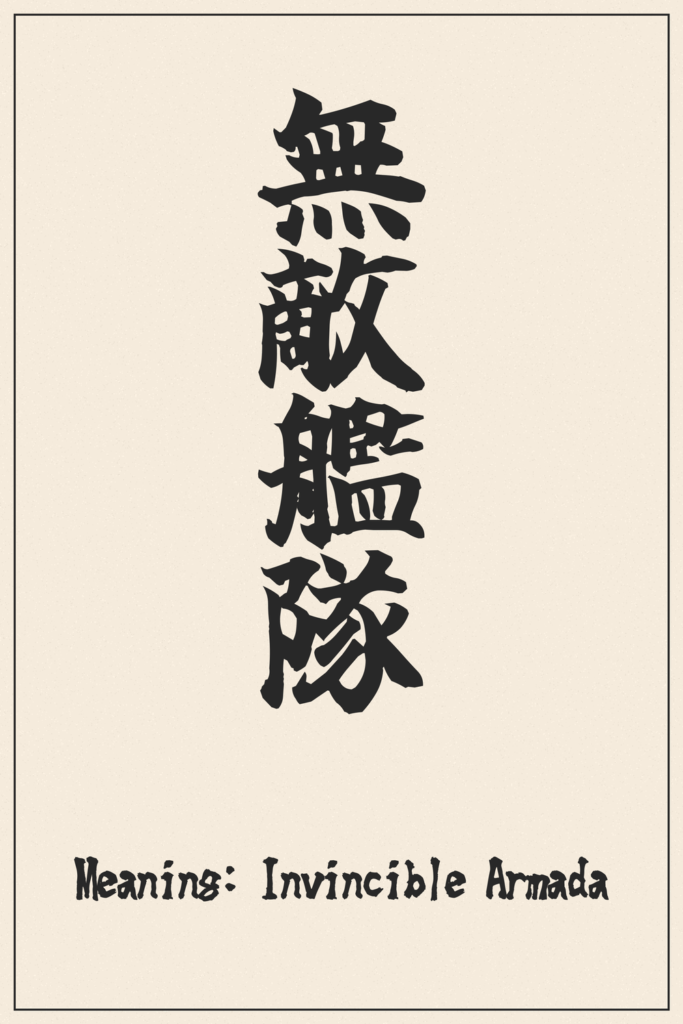 無敵艦隊
Meaning: Invincible Armada